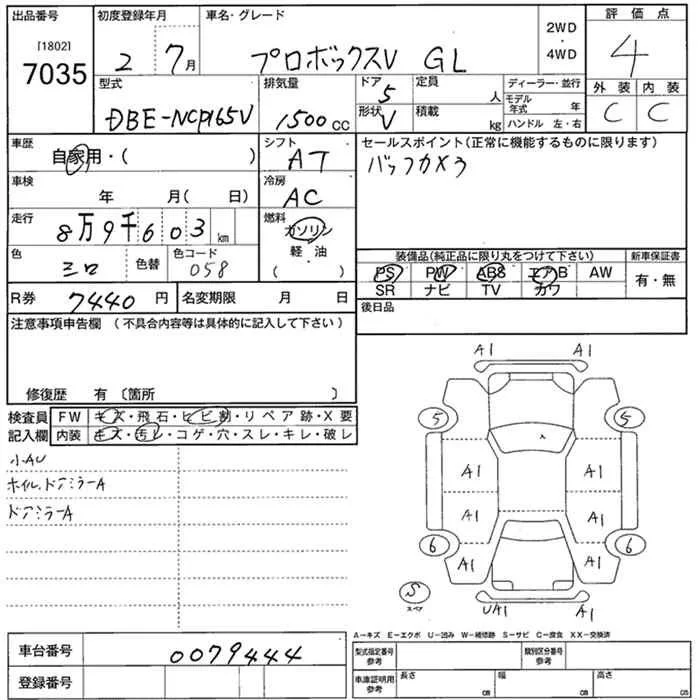 出品番号
[1802]
7035
初度登録年月
2 7月
車名・グレード
プロボックスV GL
2WD
・
4WD
評価点
4
外装 内装
C C
型式
DBE-NCP165V
排気量
1500cc
ドア
5
形状
V
定員
人
積載
kg
ディーラー・並行
モデル年式 年
ハンドル 左・右
車歴
自家用・( )
シフト
AT
セールスポイント(正常に機能するものに限ります)
バックカメラ
車検
年 月( 日)
冷房
AC
走行
8万9千603km
燃料
ガソリン
軽・油
( )
色
シロ
色替
色コード
058
装備品(純正品に限り丸をつけて下さい)
新車保証書
PS PW ABS エアB AW
SR ナビ TV カワ
有・無
R券 7440円
名変期限 月 日
後日品
注意事項申告欄 (不具合内容等は具体的に記入して下さい)
修復歴 有 〔箇所 〕
検査員
記入欄
FW キズ・飛石・ヒビ割・リペア跡・X要
内装 キズ・汚レ・コゲ・穴・スレ・キレ・破レ
小AU
ホイル,ドアミラーA
ドアミラーA
A1 A1
5 5
A1 A1
A1 A1
6 6
A1 A1
S
スペア
UA1 A1
A−キズ E−エクボ U−凹み W−補修跡 S−サビ C−腐食 XX−交換済
車台番号
0079444
登録番号
型式指定番号
参考
類別区分番号
参考
車庫証明用
参考
長さ cm
幅 cm
高さ cm